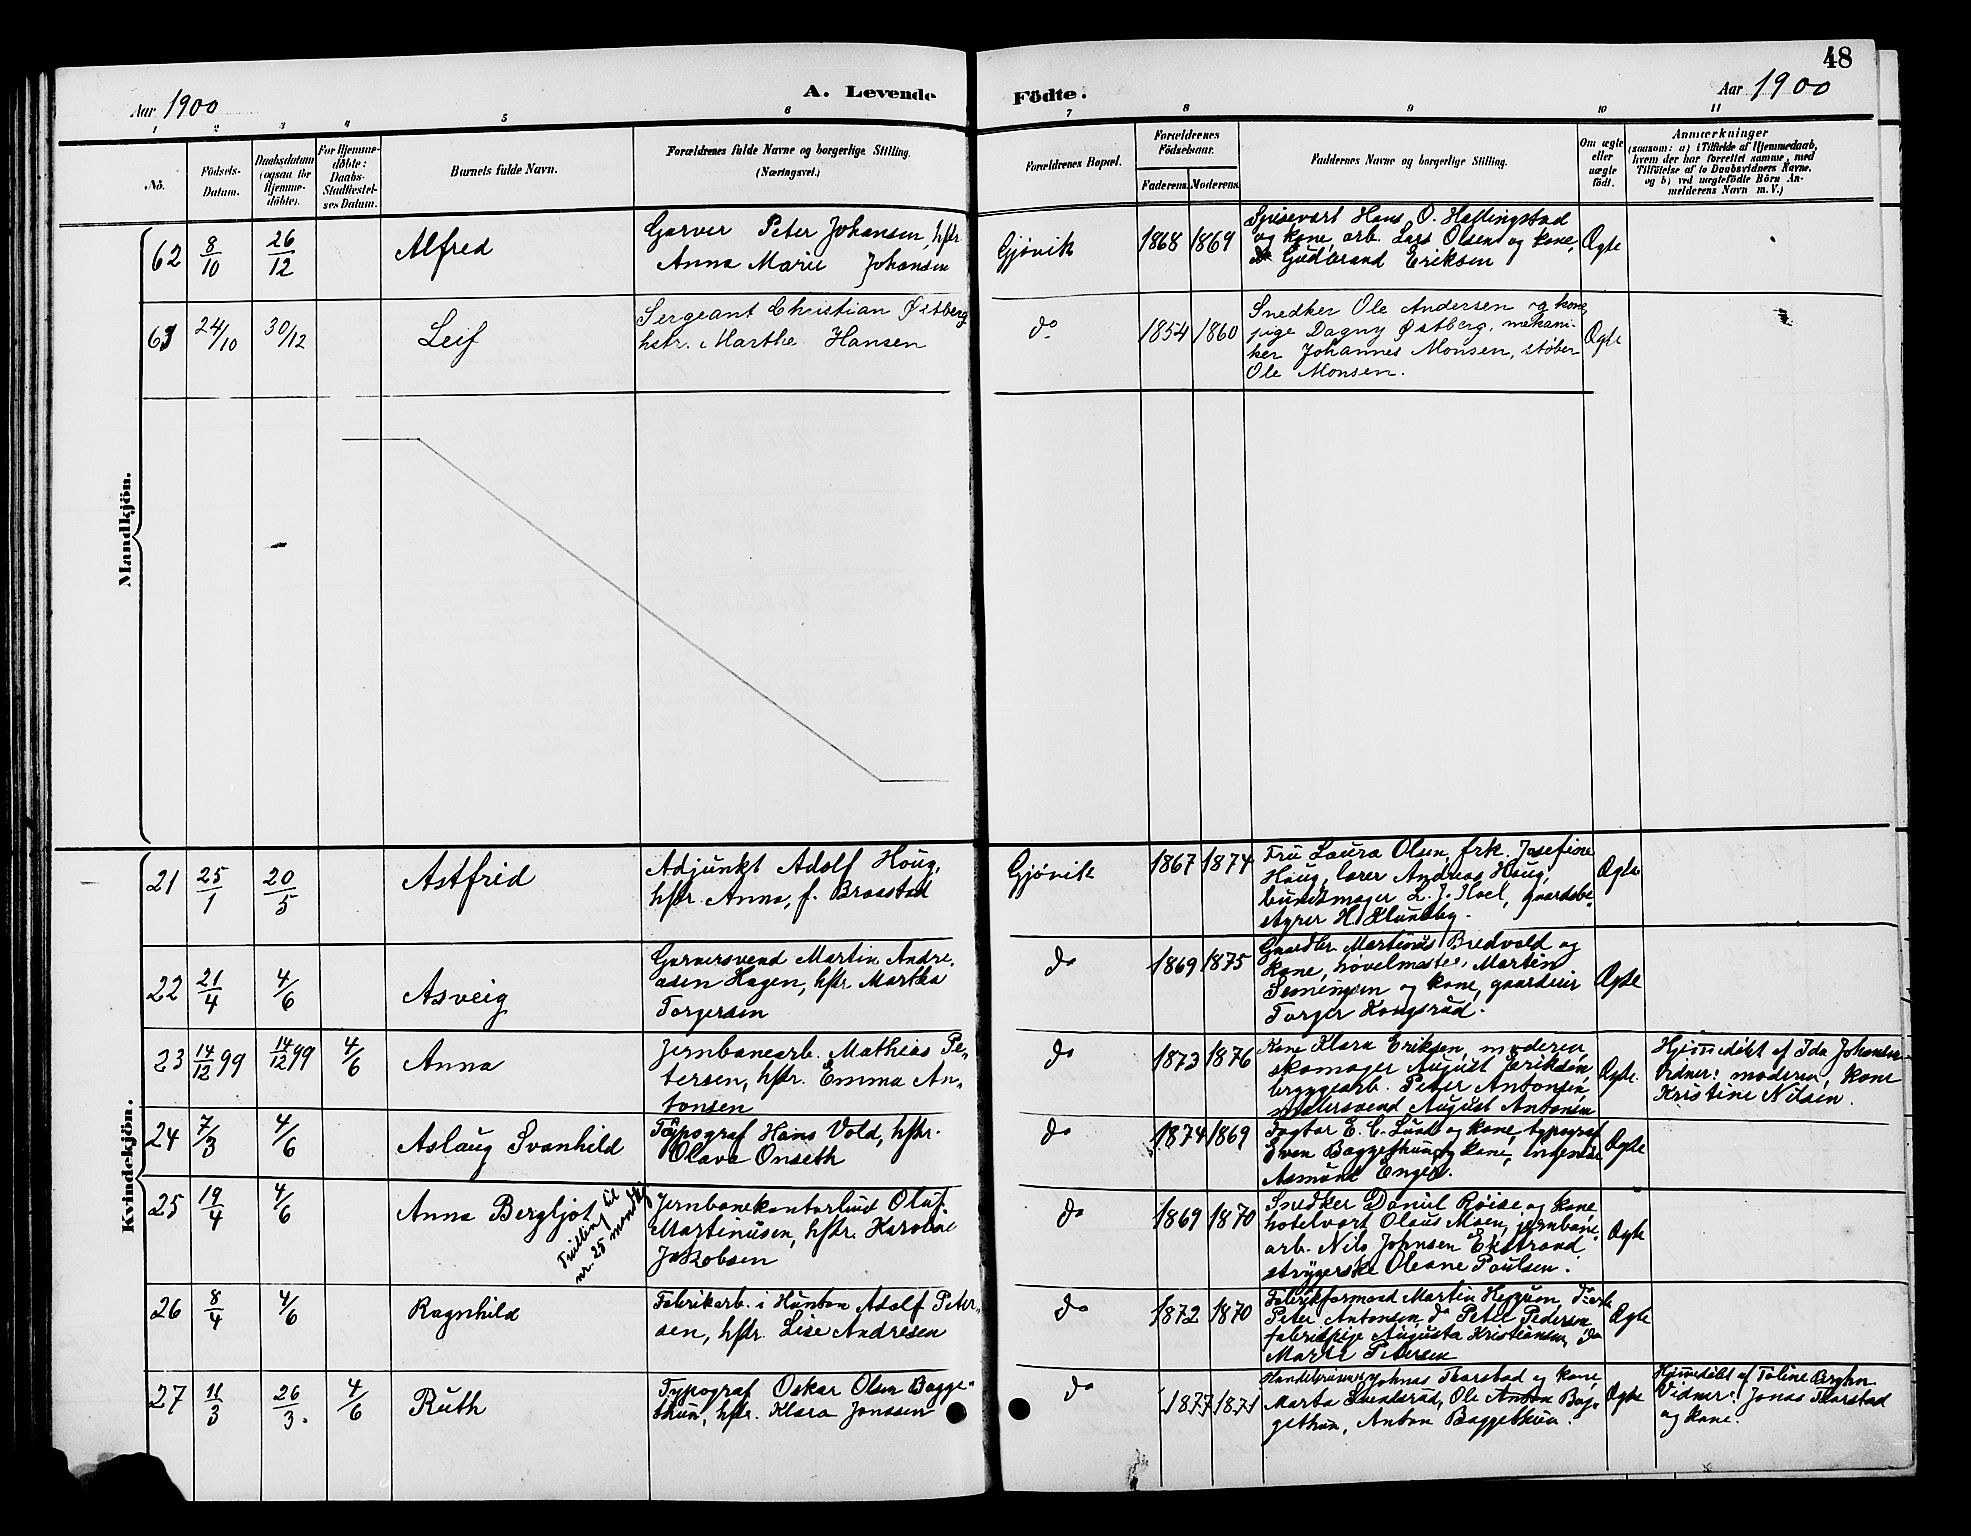 48
Aar 1900
A. Levende Födte.
Aar 1900
1 2 3 4 5 6 7 8 9 10 11
No.
Födsels-Datum.
Daabsdatum (ogsaa for Hjemme-döbte).
For Hjemme-döbte: Daabs-Stadfæstel-ses Datum.
Barnets fulde Navn.
Forældrenes fulde Navne og borgerlige Stilling.
(Næringsvei.)
Forældrenes Bopæl.
Forældrenes Födselsaar.
Faderens. Moderens.
Faddernes Navne og borgerlige Stilling.
Om ægte eller uægte födt.
Anmærkninger
(saasom: a) i Tilfælde af Hjemmedaab,
hvem der har forrettet samme, med
Tilföielse af to Daabsvidners Navne,
og b) ved uægtefödte Börn An-
melderens Navn m. V.)
Mandkjön.
62 8/10 26/12 Alfred
Garver Peter Johansen, hstr
Anna Marie Johansen
Gjövik 1868 1869
Spisevært Hans O. Hallingstad
og kone, arb. Lars Olsen og kone,
do Gudbrand Eriksen
Ægte
63 24/10 30/12 Leif
Sergeant Christian Østberg
hstr. Marthe Hansen
do 1854 1860
Snedker Ole Andersen og kone,
pige Dagny Østberg, mekani-
ker Johannes Monsen, støber
Ole Monsen.
Ægte
Kvindekjön.
21 25/1 20/5 Astfrid
Adjunkt Adolf Houg,
hstr. Anna, f. Braastad
Gjövik 1867 1874
Fru Laura Olsen, frk. Josefine
Houg, lærer Andreas Houg,
buntmager L. J. Hoel, gaardsbe-
styrer H. Klundby.
Ægte
22 21/4 4/6 Asveig
Garversvend Martin Andre-
asen Hagen, hstr. Martha
Torgersen
do 1869 1875
Gaardbr. Martinus Bredvold og
kone, høvelmester Martin
Semingsen og kone, gaardeier
Torger Kongsrud.
Ægte
23 14/12 99 14/12 99 4/6 Anna
Jernbanearb. Mathias Pe-
tersen, hstr. Emma An-
tonsen
do 1873 1876
Kone Klara Eriksen, moderen,
skomager August Eriksen,
bryggearb. Peter Antonsen,
malersvend August Antonsen
Ægte.
Hjemmedöbt af Ida Johansen
Vidner: moderen, kone
Kristine Nilsen.
24 7/3 4/6 Aslaug Svanhild
Typograf Hans Vold, hstr.
Olava Onseth
do 1874 1869
Fogtor E. C. Lund og kone, typograf
Even Baggethun og kone,
Asmund Enger.
Ægte
25 19/4 4/6 Anna Bergljot
Tvilling til
nr. 25 mandkj
Jernbanekontorbud Olaf
Martinusen, hstr. Karoline
Jakobsen
do 1869 1870
Snedker Daniel Røise og kone
hotelvært Olaus Moen, jernbane-
arb. Nils Johnsen Ekstrand,
strygerske Oleane Paulsen.
Ægte
26 8/4 4/6 Ragnhild
Fabrikarb. i Hunton Adolf Peter-
sen, hstr. Lise Andresen
do 1872 1870
Fabrikformand Martin Hexum, do arb.
Peter Antonsen, do Peter Pedersen
fabrikpige Augusta Kristiansen, do
Marie Petersen
Ægte
27 11/3 26/3. 4/6 Ruth
Typograf Oskar Olsen Bagge-
thun, hstr. Klara Jonssen
do 1877 1871
Johnas Thorstad og kone,
Marta Ole Anton Bag-
gethun, Anton Baggethun.
Ægte
Hjemmedöbt af Toline Berghn
Vidner: Jonas Thorstad
og kone.